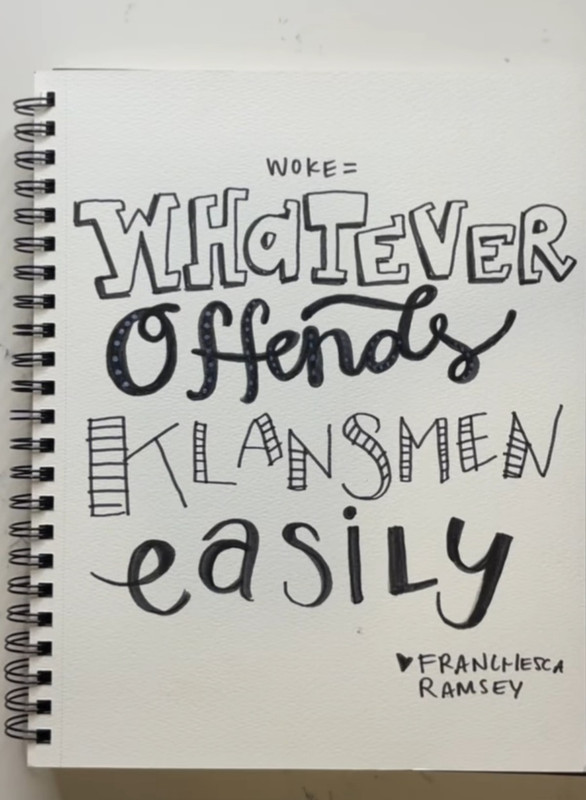 WOKE=
WHaTEVER
Offends
KLANSMEN
easily
♥ FRANCHESCA
RAMSEY